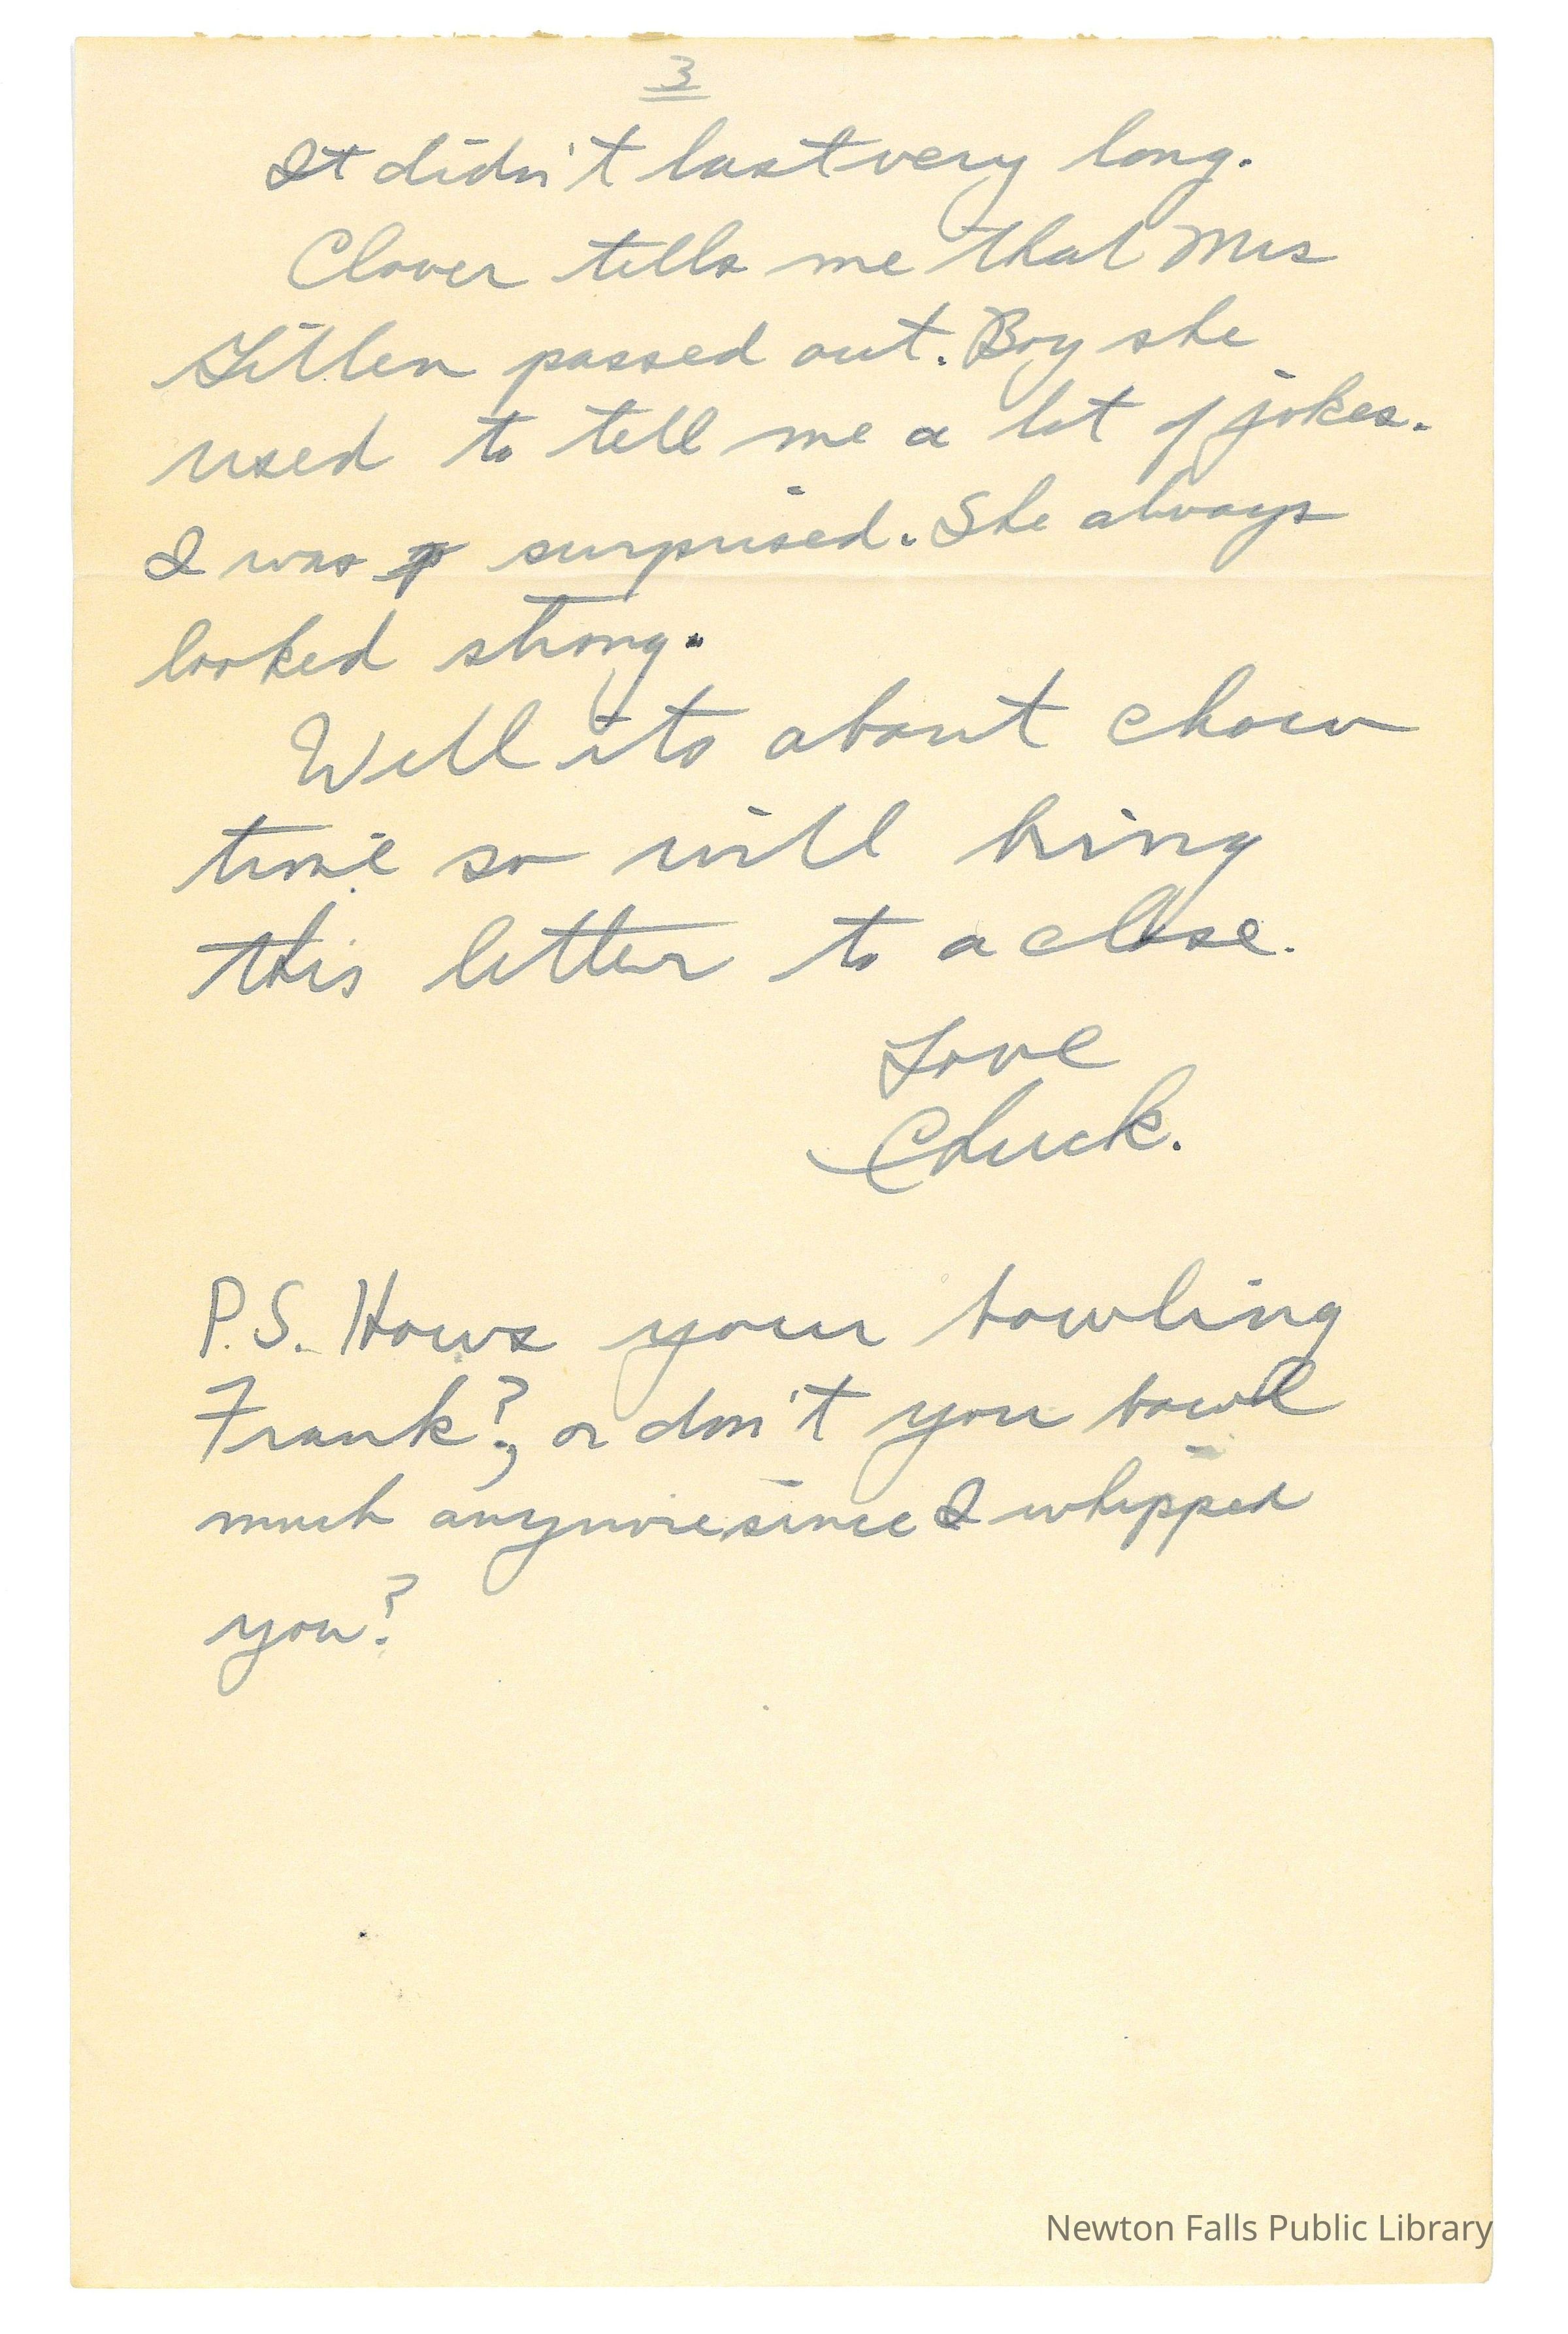 3
It didn't last very long.
Clover tells me that Mrs
passed out. Boy she
used to tell me a lot of jokes.
I was surprised. She always
looked strong.
Well its about chow
time so will bring
this letter to a close.
Love
Chuck.
P.S. Hows your bowling
Frank?, or don't you bowl
much anymore since I whipped
you?
Newton Falls Public Library